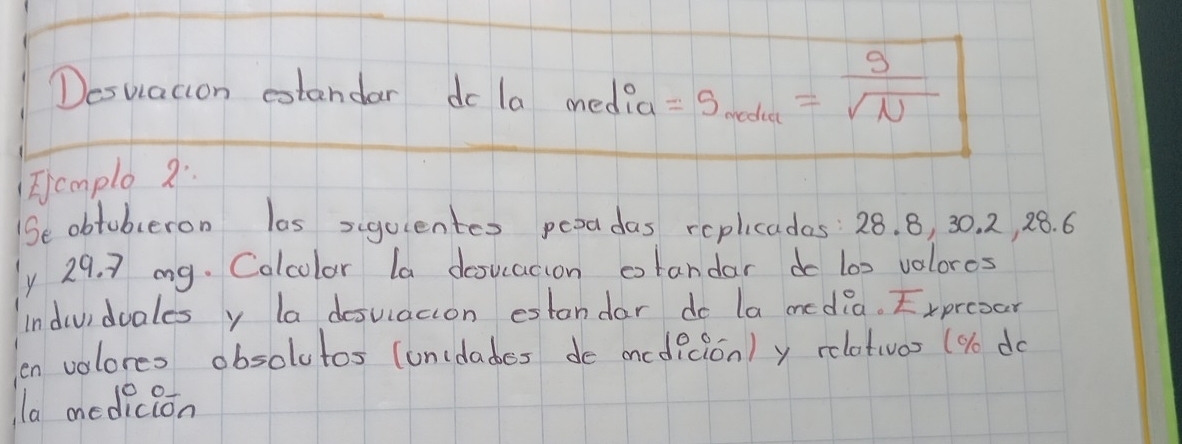 Desviacion estandar de la media = S media = s / √N
Ejemplo 2:
Se obtubieron las siguientes pesadas replicadas: 28.8, 30.2, 28.6
y 29.7 mg. Calcular la desviacion estandar de los valores
individuales y la desviacion estandar de la media. Expresar
en valores absolutos (unidades de medición) y relativos (% de
la medición